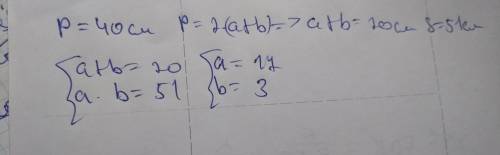 P = 40см P = 2(a+b) => a+b = 20см S=51см
{a+b = 20 {a = 17
a · b = 51 b = 3